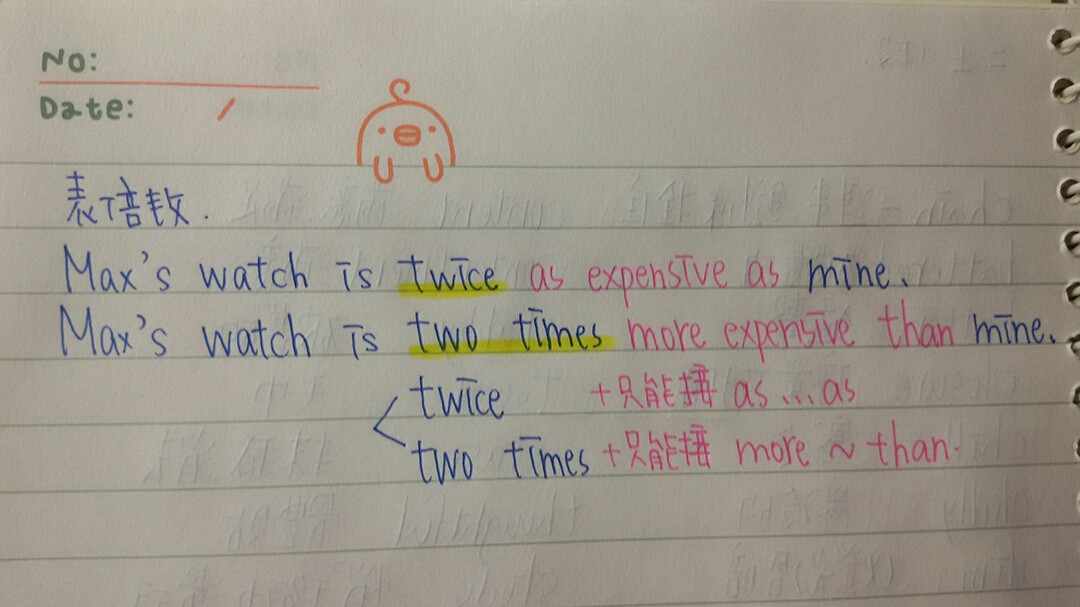 No:
Date: /
表倍數.
Max's watch is twice as expensive as mine.
Max's watch is two times more expensive than mine.
twice +只能接 as...as
two times +只能接 more ~ than.